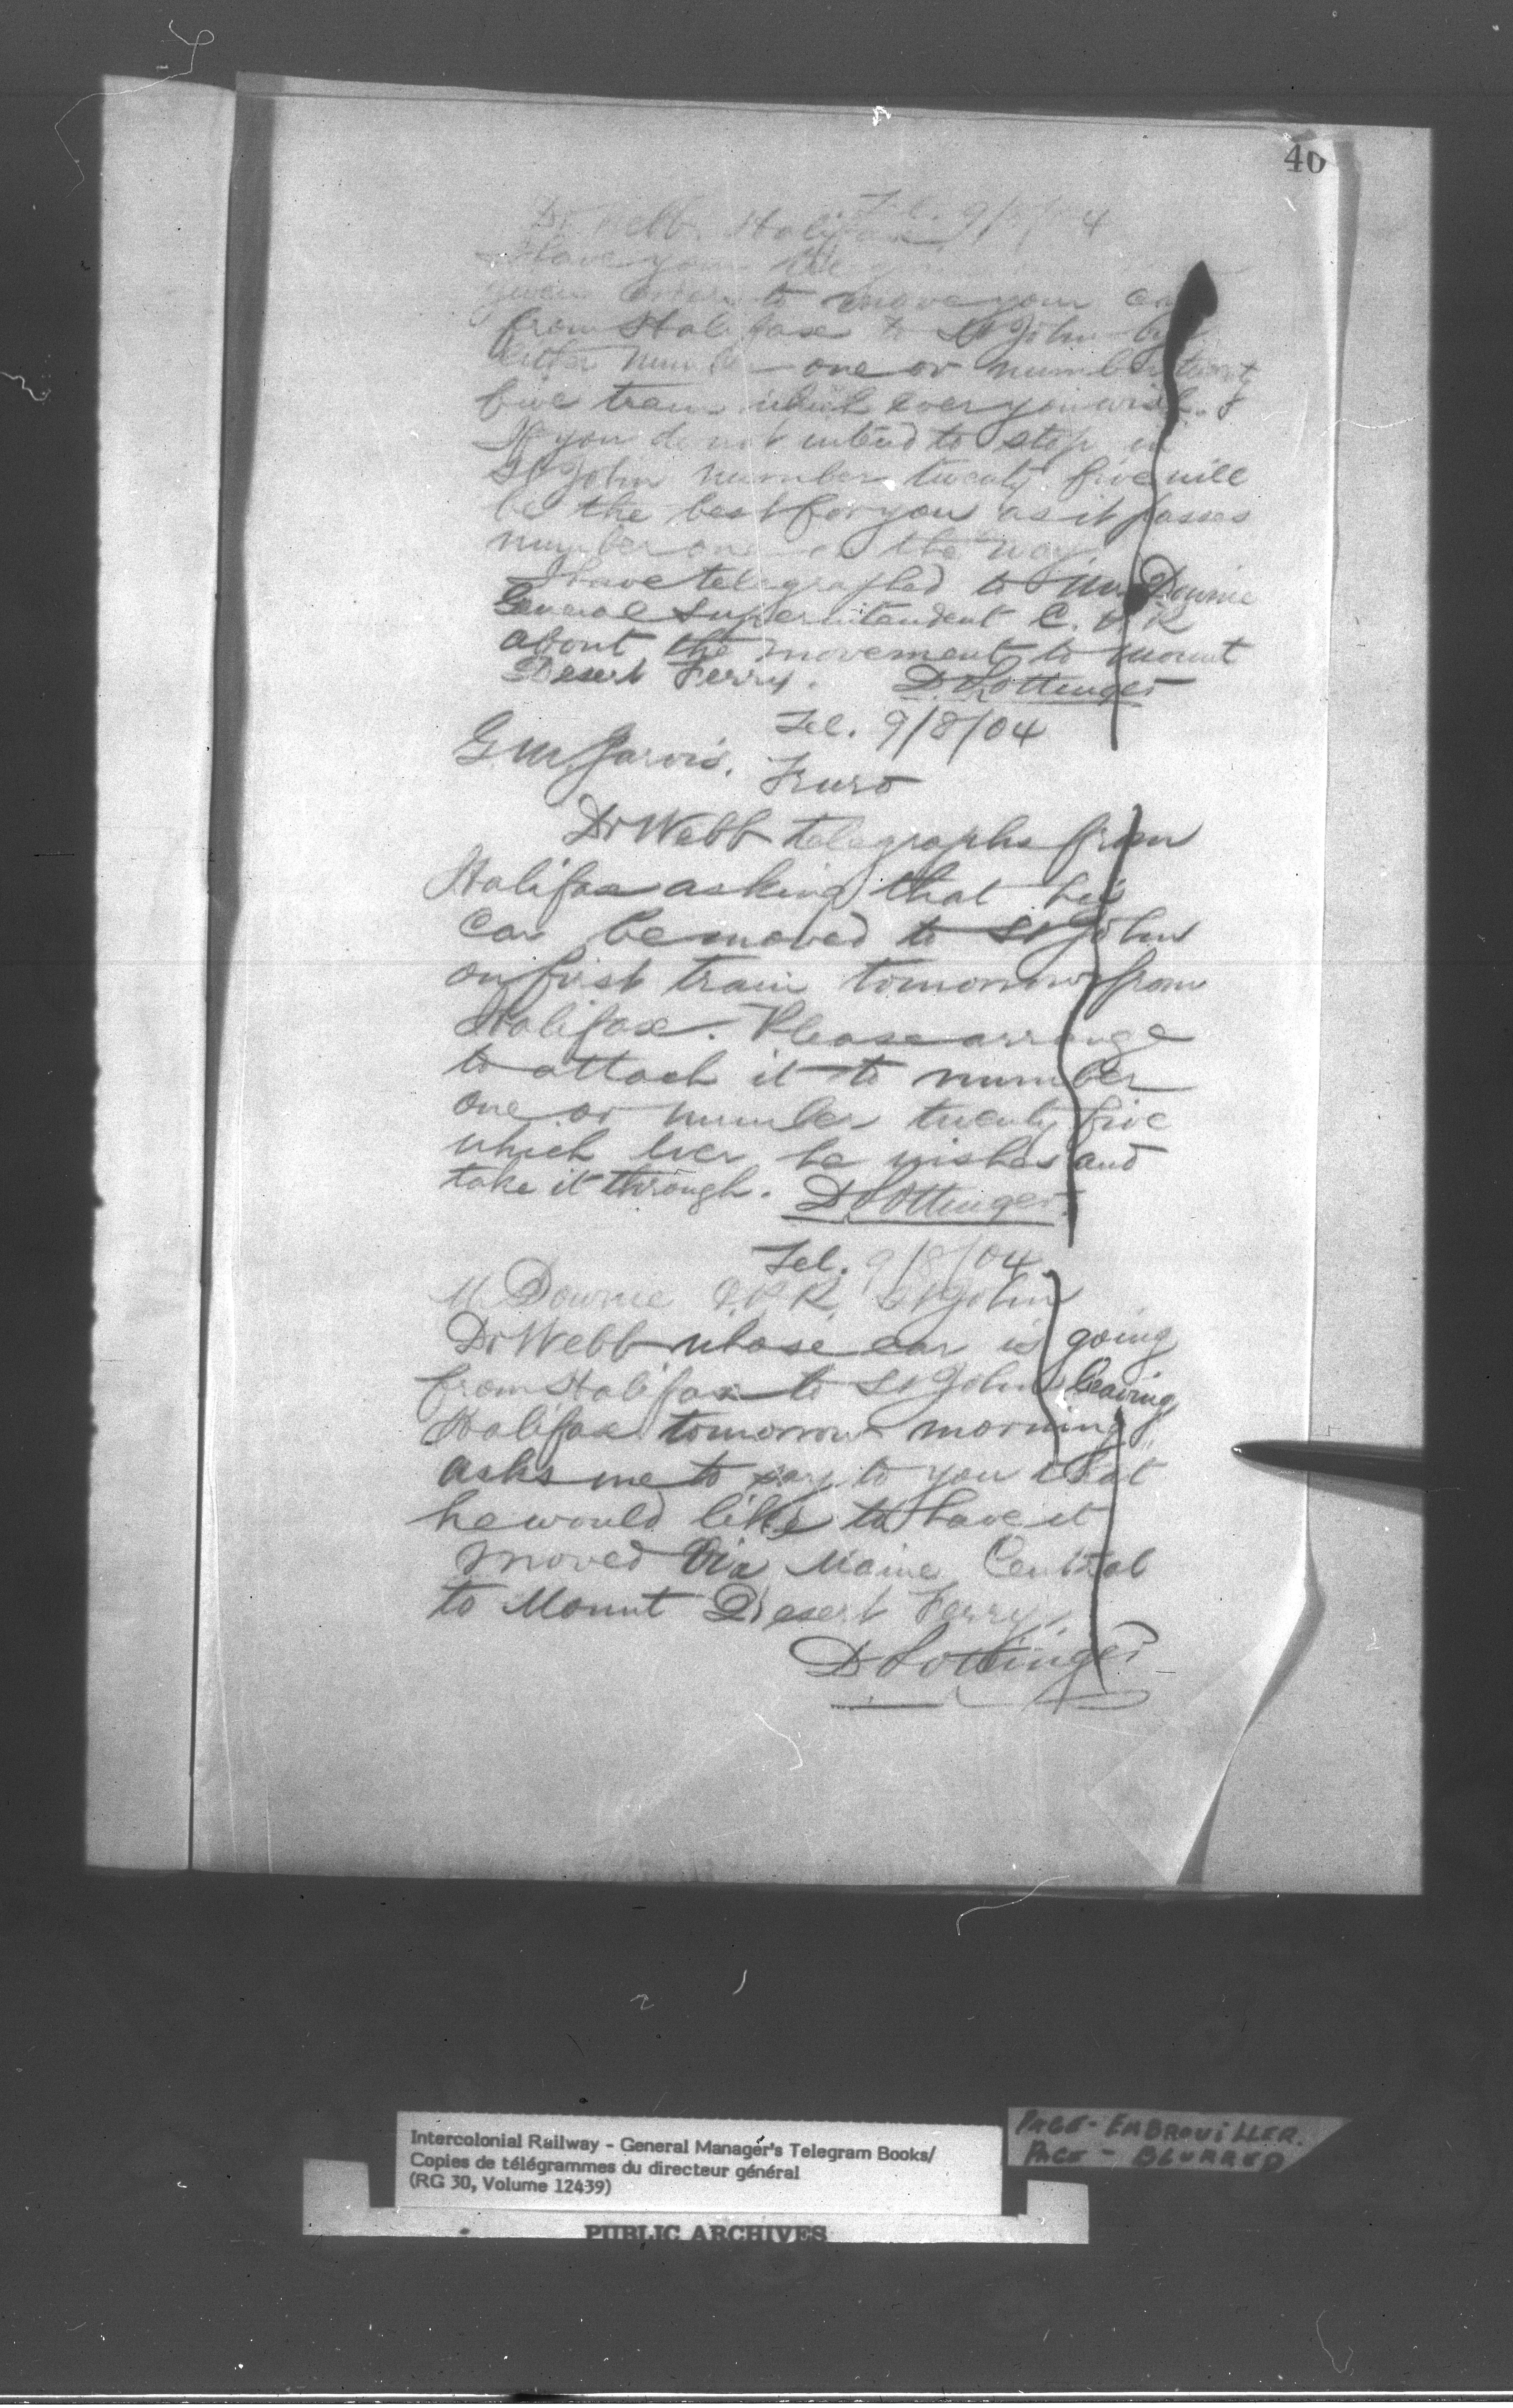 40
Tel. 9/8/04
Dr Webb. Halifax
Have your telegram
given orders to move your car
from Halifax to St John by
either number one or number twenty
five train which ever you wish.
If you do not intend to stop in
St John number twenty five will
be the best for you as it passes
number one on the way.
I have telegraphed to Mr Downie
General Superintendent C. P. R
about the movement to Mount
Desert Ferry. D. Pottinger
Tel. 9/8/04
G. M. Jarvis. Truro
Dr Webb telegraphs from
Halifax asking that his
Car be moved to St John
on first train tomorrow from
Halifax. Please arrange
to attach it to number
one or number twenty five
which ever he wishes and
take it through. D Pottinger.
Tel. 9/8/04.
W Downie C.P.R. St John
Dr Webb whose car is going
from Halifax to St John leaving
Halifax tomorrow morning
asks me to say to you that
he would like to have it
moved Via Maine Central
to Mount Desert Ferry.
D Pottinger
PAGE - EMBROUILLER.
PAGE - BLURRED
Intercolonial Railway - General Manager's Telegram Books/
Copies de télégrammes du directeur général
(RG 30, Volume 12439)
PUBLIC ARCHIVES